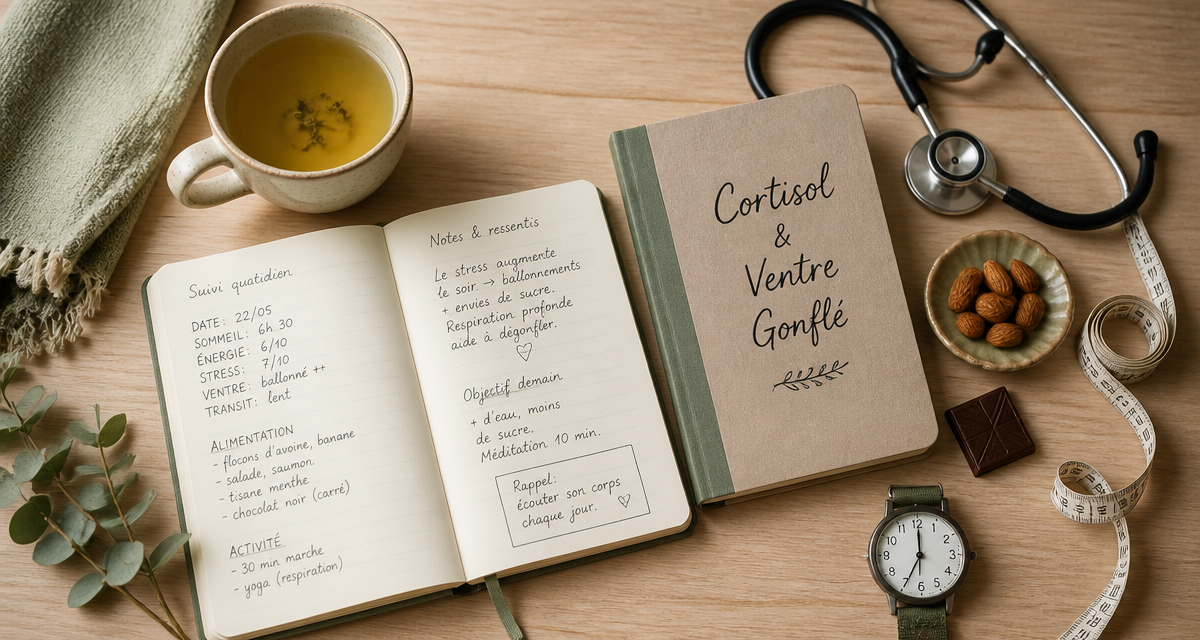 Suivi quotidien
DATE: 22/05
SOMMEIL: 6h 30
ÉNERGIE: 6/10
STRESS: 7/10
VENTRE: ballonné ++
TRANSIT: lent
ALIMENTATION
- flocons d'avoine, banane
- salade, saumon
- tisane menthe
- chocolat noir (carré)
ACTIVITÉ
- 30 min marche
- yoga (respiration)
Notes & ressentis
Le stress augmente
le soir → ballonnements
+ envies de sucre.
Respiration profonde
aide à dégonfler.
Objectif demain
+ d'eau, moins
de sucre.
Méditation 10 min.
Rappel:
écouter son corps
chaque jour.
Cortisol
&
Ventre
Gonflé
12
1
2
3
4
5
6
7
8
9
10
11